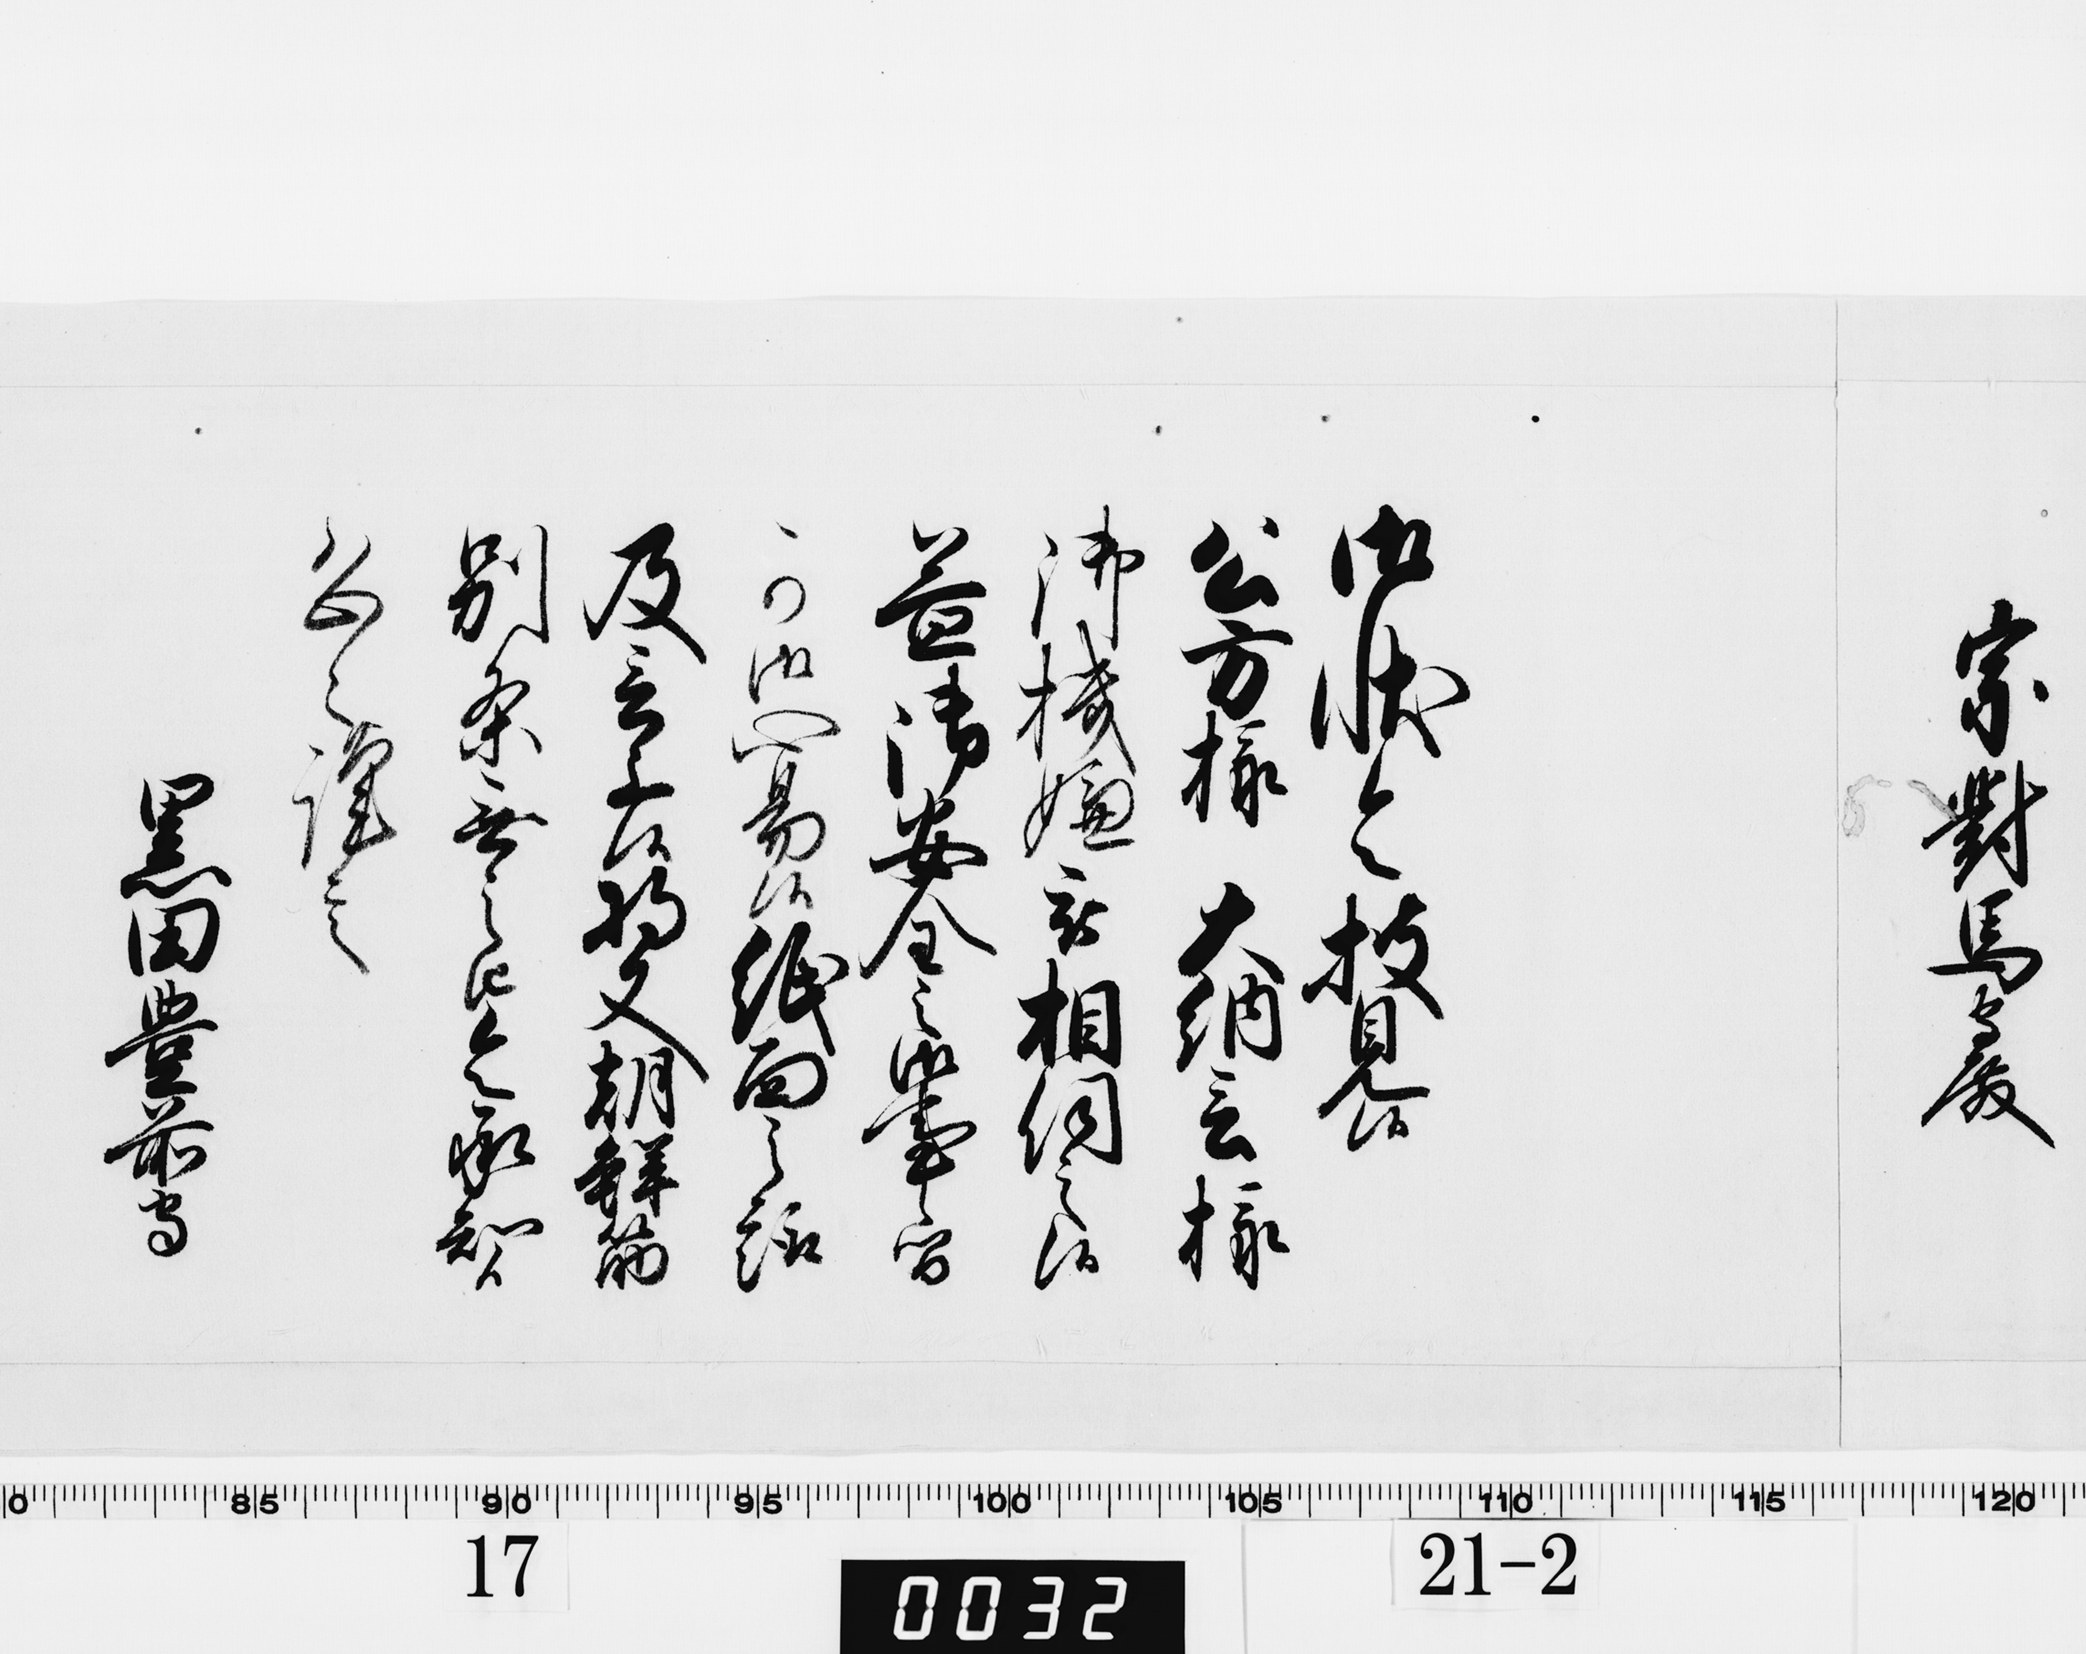 宗對馬守殿
御状令披見候
公方様 大納言様
御機嫌之程相伺之候
益御安全之御事ニ候間
可御心易候紙面之趣
及言上候将又朝鮮筋
別条無之旨令承知候
恐々謹言
黒田豊前守
0 85 90 95 100 105 110 115 120
17
0032
21-2